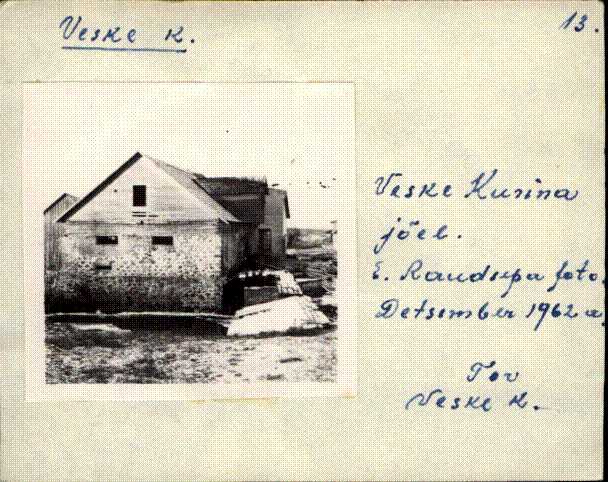 Veske K.
13.
Veske Kurina
jõel.
E. Raudsepa foto.
Detsember 1962 a.
Tor
Veske K.